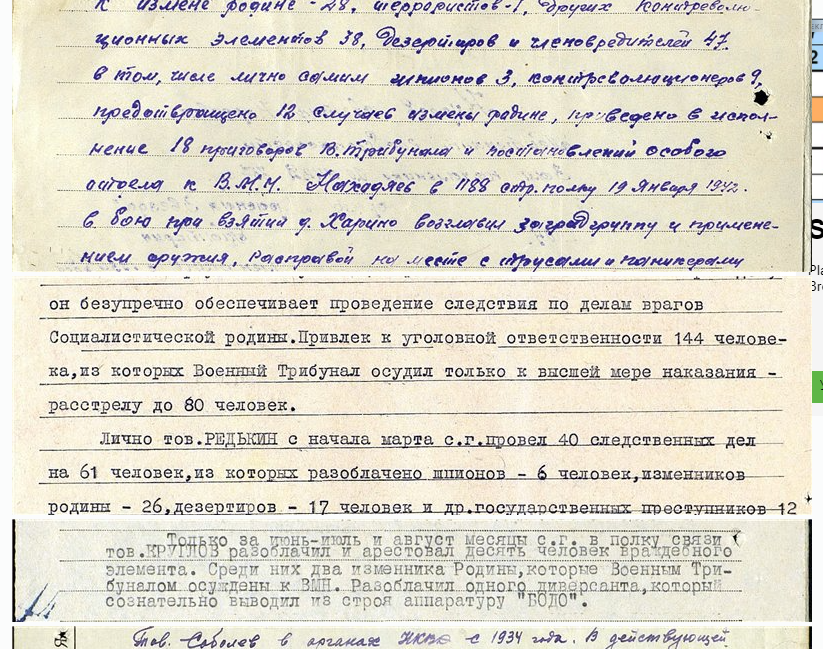 к измене родине - 28, террористов-1, других контрреволю-
ционных элементов 38, дезертиров и членовредителей 47.
в том, числе лично самим шпионов 3, контрреволюционеров 9,
предотвращено 12 случаев измены родине, приведено в испол-
нение 18 приговоров В.Трибунала и постановлений особого
отдела к В.М.Н. Находясь в 1188 стр. полку 19 января 1942.
в бою при взятии д. Харино возглавил заградгруппу и примене-
нием оружия, расправой на месте с трусами и паникерами
он безупречно обеспечивает проведение следствия по делам врагов
Социалистической родины.Привлек к уголовной ответственности 144 челове-
ка,из которых Военный Трибунал осудил только к высшей мере наказания -
расстрелу до 80 человек.
Лично тов.РЕДЬКИН с начала марта с.г.провел 40 следственных дел
на 61 человек,из которых разоблачено шпионов - 6 человек,изменников
родины - 26,дезертиров - 17 человек и др.государственных преступников 12
Только за июнь-июль и август месяцы с.г. в полку связи
тов.КРУГЛОВ разоблачил и арестовал десять человек враждебного
элемента. Среди них два изменника Родины,которые Военным Три-
буналом осуждены к ВМН. Разоблачил одного диверсанта,который
сознательно выводил из строя аппаратуру "БОДО".
Тов. Соболев в органах НКВД с 1934 года. В действующей